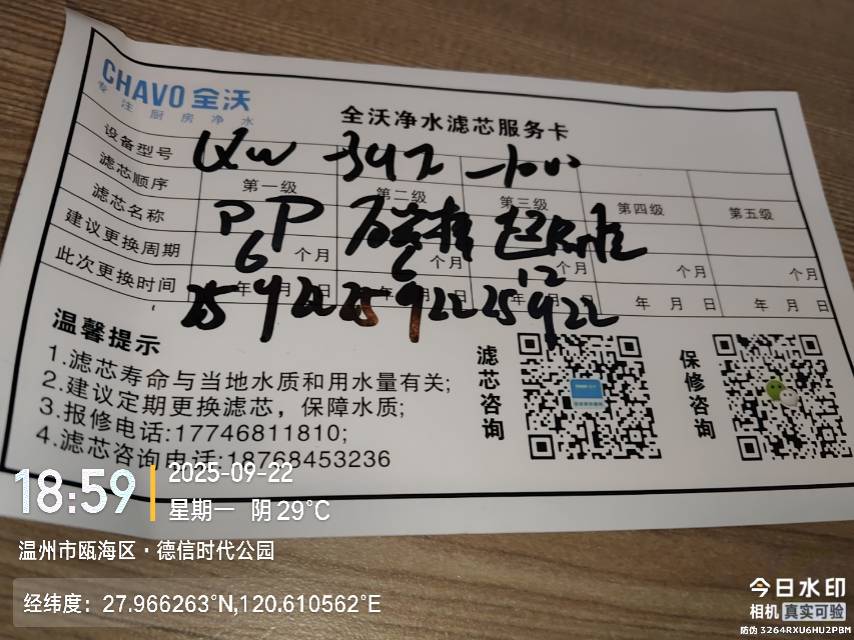 CHAVO 全沃
专注厨房净水
全沃净水滤芯服务卡
设备型号
滤芯顺序 第一级 第二级 第三级 第四级 第五级
滤芯名称 PP
建议更换周期 6个月 6个月 12个月 个月 个月
此次更换时间 25年9月22日 25 9 22 25 9 22 年 月 日 年 月 日
温馨提示
1.滤芯寿命与当地水质和用水量有关;
2.建议定期更换滤芯，保障水质;
3.报修电话:17746811810;
4.滤芯咨询电话:18768453236
滤芯咨询
保修咨询
18:59
2025-09-22
星期一 阴 29°C
温州市瓯海区·德信时代公园
经纬度：27.966263°N,120.610562°E
今日水印
相机 真实可验
防伪 3264RXU6HU2PBM